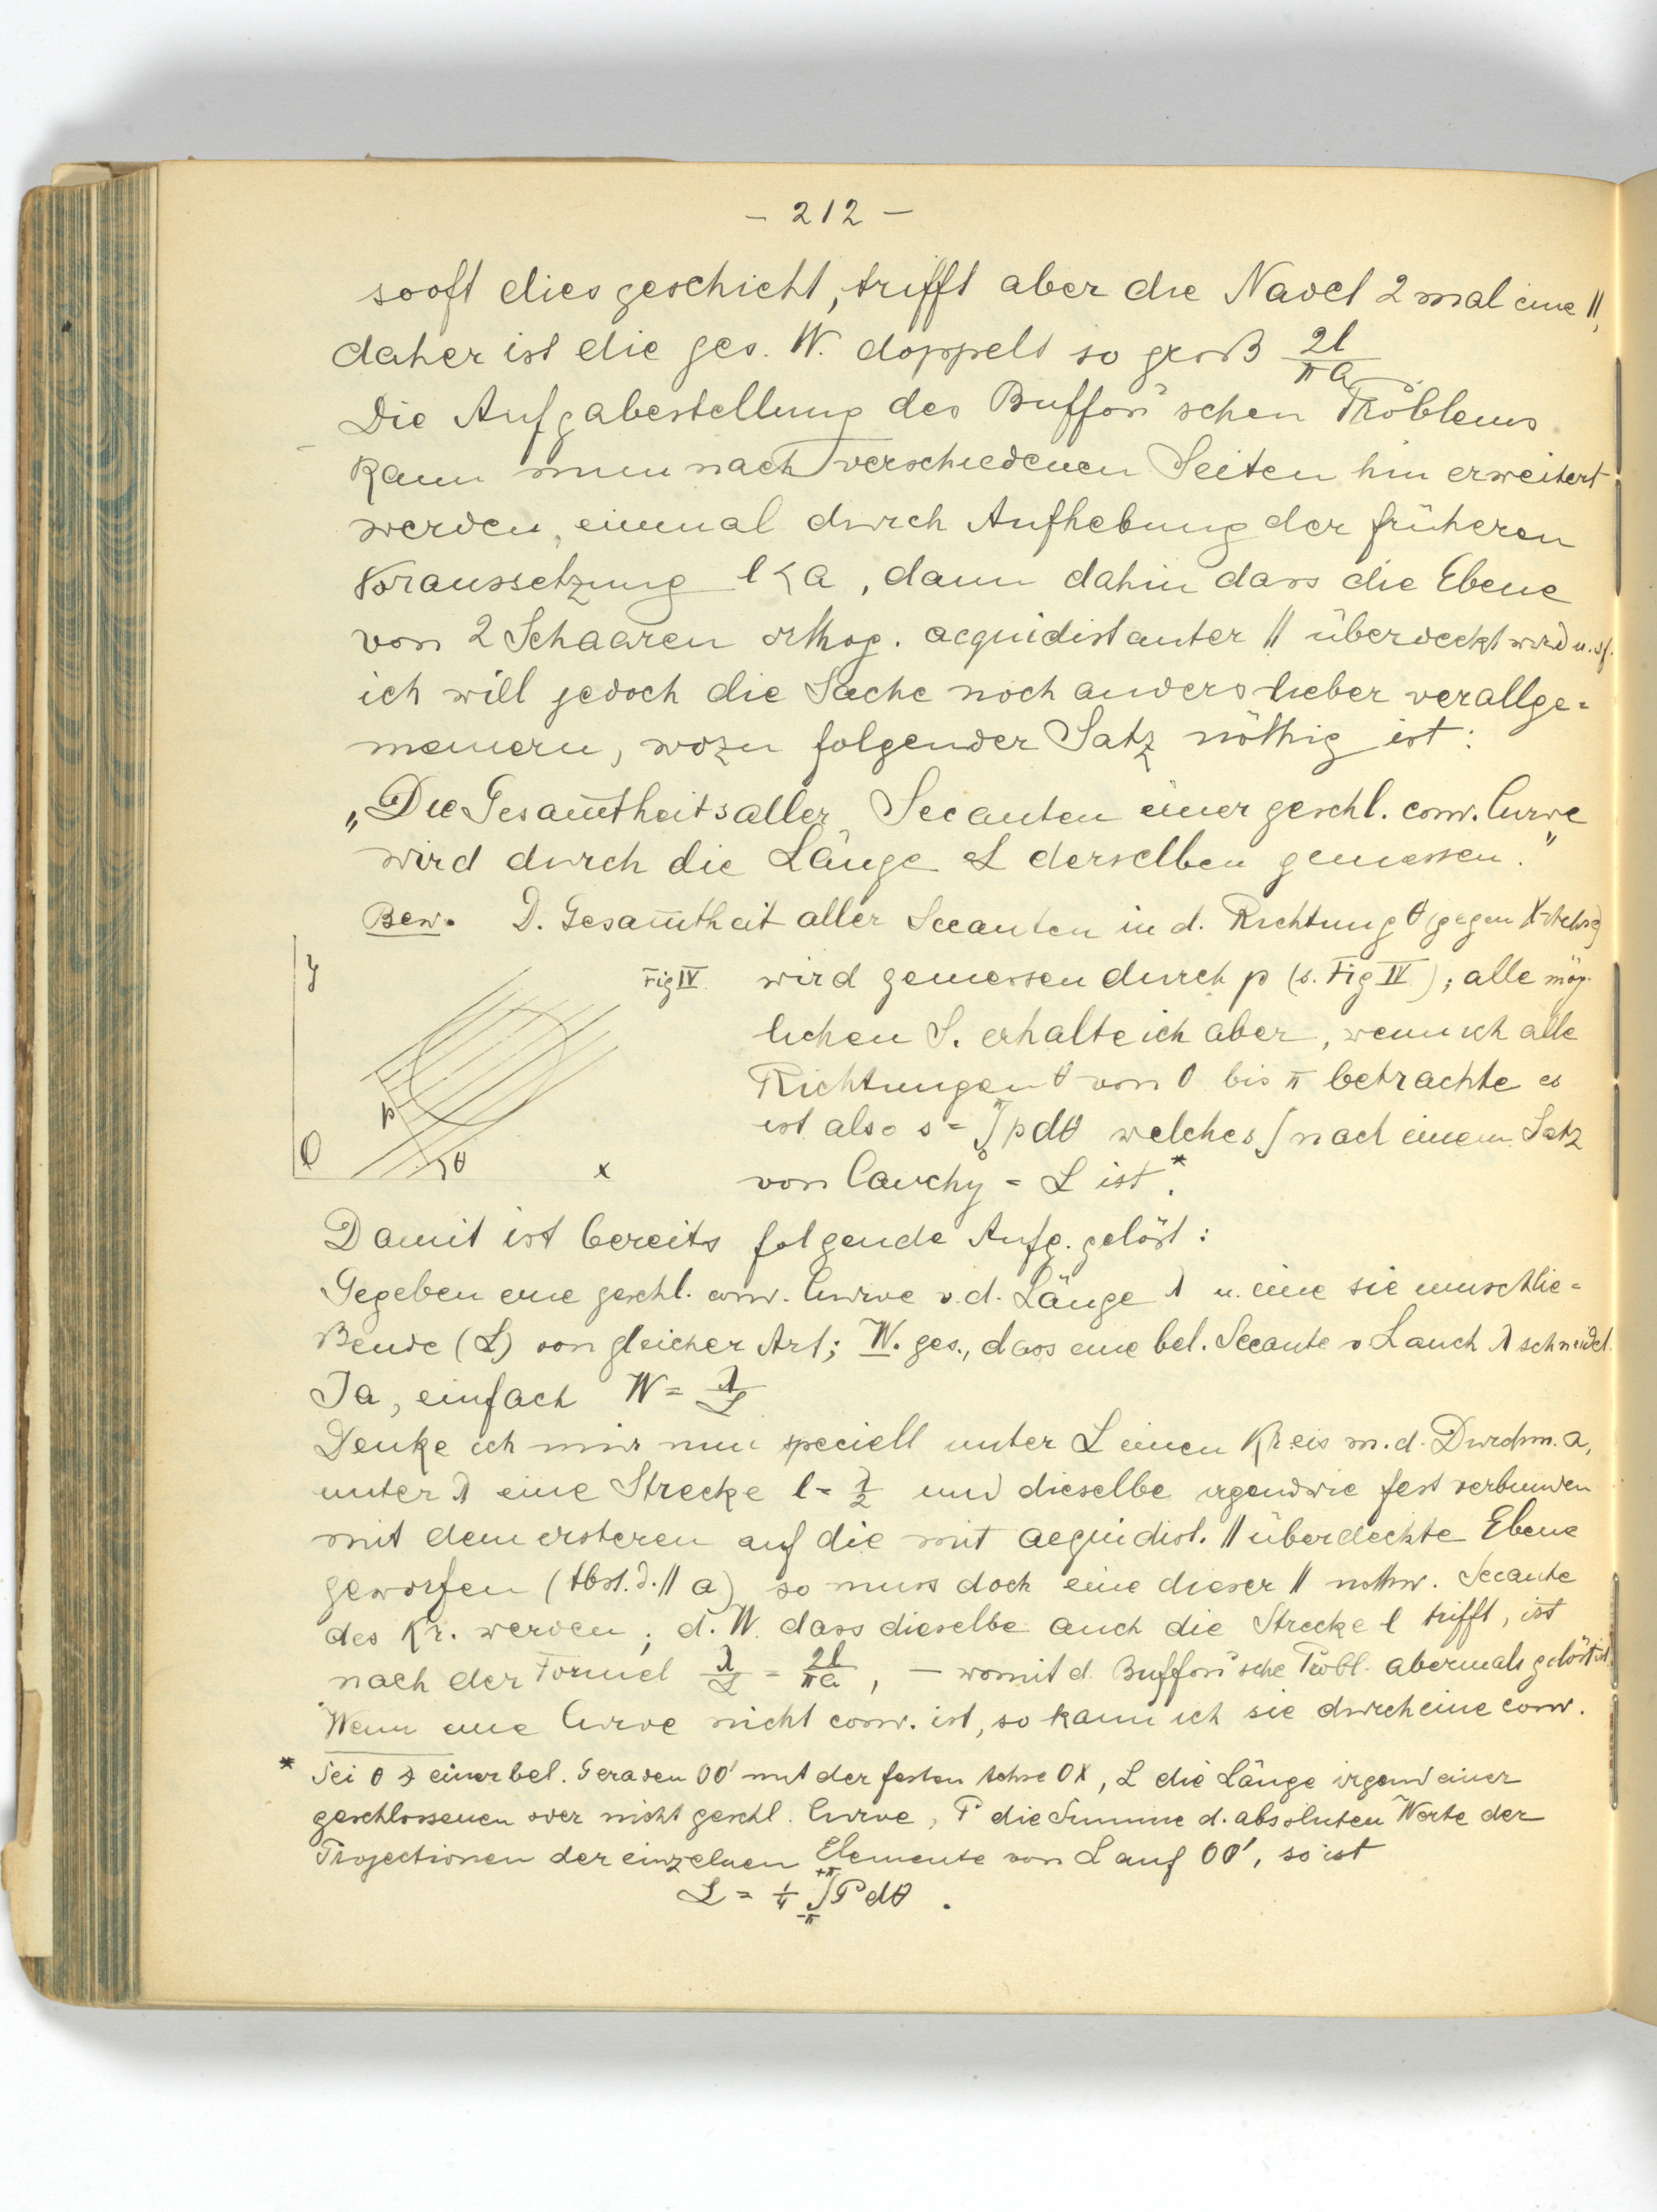 – 212 –
sooft dies geschieht, trifft aber die Nadel 2 mal eine ||,
daher ist die ges. W. doppelt so groß 2l/πa
Die Aufgabestellung des Buffon'schen Problems
kann nun nach verschiedenen Seiten hin erweitert
werden, einmal durch Aufhebung der früheren
Voraussetzung l<a, dann dahin dass die Ebene
von 2 Schaaren orthog. aequidistanter || überdeckt wird u.sf.
ich will jedoch die Sache noch anders lieber verallge=
meinern, wozu folgender Satz nöthig ist:
„Die Gesam̅theit aller Secanten einer geschl. conv. Curve
wird durch die Länge L derselben gemessen.“
Bew. D. Gesam̅theit aller Secanten in d. Richtung θ (gegen X-Achse)
Fig IV wird gemessen durch p (s. Fig IV); alle mög-
lichen S. erhalte ich aber, wenn ich alle
Richtungen θ von 0 bis π betrachte es
ist also s = ∫₀^π p dθ welches ∫ nach einem Satz
von Cauchy = L ist.*
y
p
O
θ
x
Damit ist bereits folgende Aufg. gelöst:
Gegeben eine geschl. conv. Curve v. d. Länge λ u. eine sie umschlie=
ßende (L) von gleicher Art; W. ges., dass eine bel. Secante v L auch λ schneidet.
Ja, einfach W = λ/L
Denke ich mir nun speciell unter L einen Kreis m. d. Durchm. a,
unter λ eine Strecke l = λ/2 und dieselbe irgendwie fest verbunden
mit dem ersteren auf die mit aequidist. || überdeckte Ebene
geworfen (Abst. d. || a) so muss doch eine dieser || nothw. Secante
des Kr. werden; d. W. dass dieselbe auch die Strecke l trifft, ist
nach der Formel λ/L = 2l/πa, – womit d. Buffon'sche Probl. abermals gelöst ist.
Wenn eine Curve nicht conv. ist, so kann ich sie durch eine conv.
* Sei θ ∢ einer bel. Geraden OO' mit der festen Achse OX, L die Länge irgend einer
geschlossenen oder nicht geschl. Curve, P die Summe d. absoluten Werte der
Projectionen der einzelnen Elemente von L auf OO', so ist
L = 1/4 ∫₋π^+π P dθ.